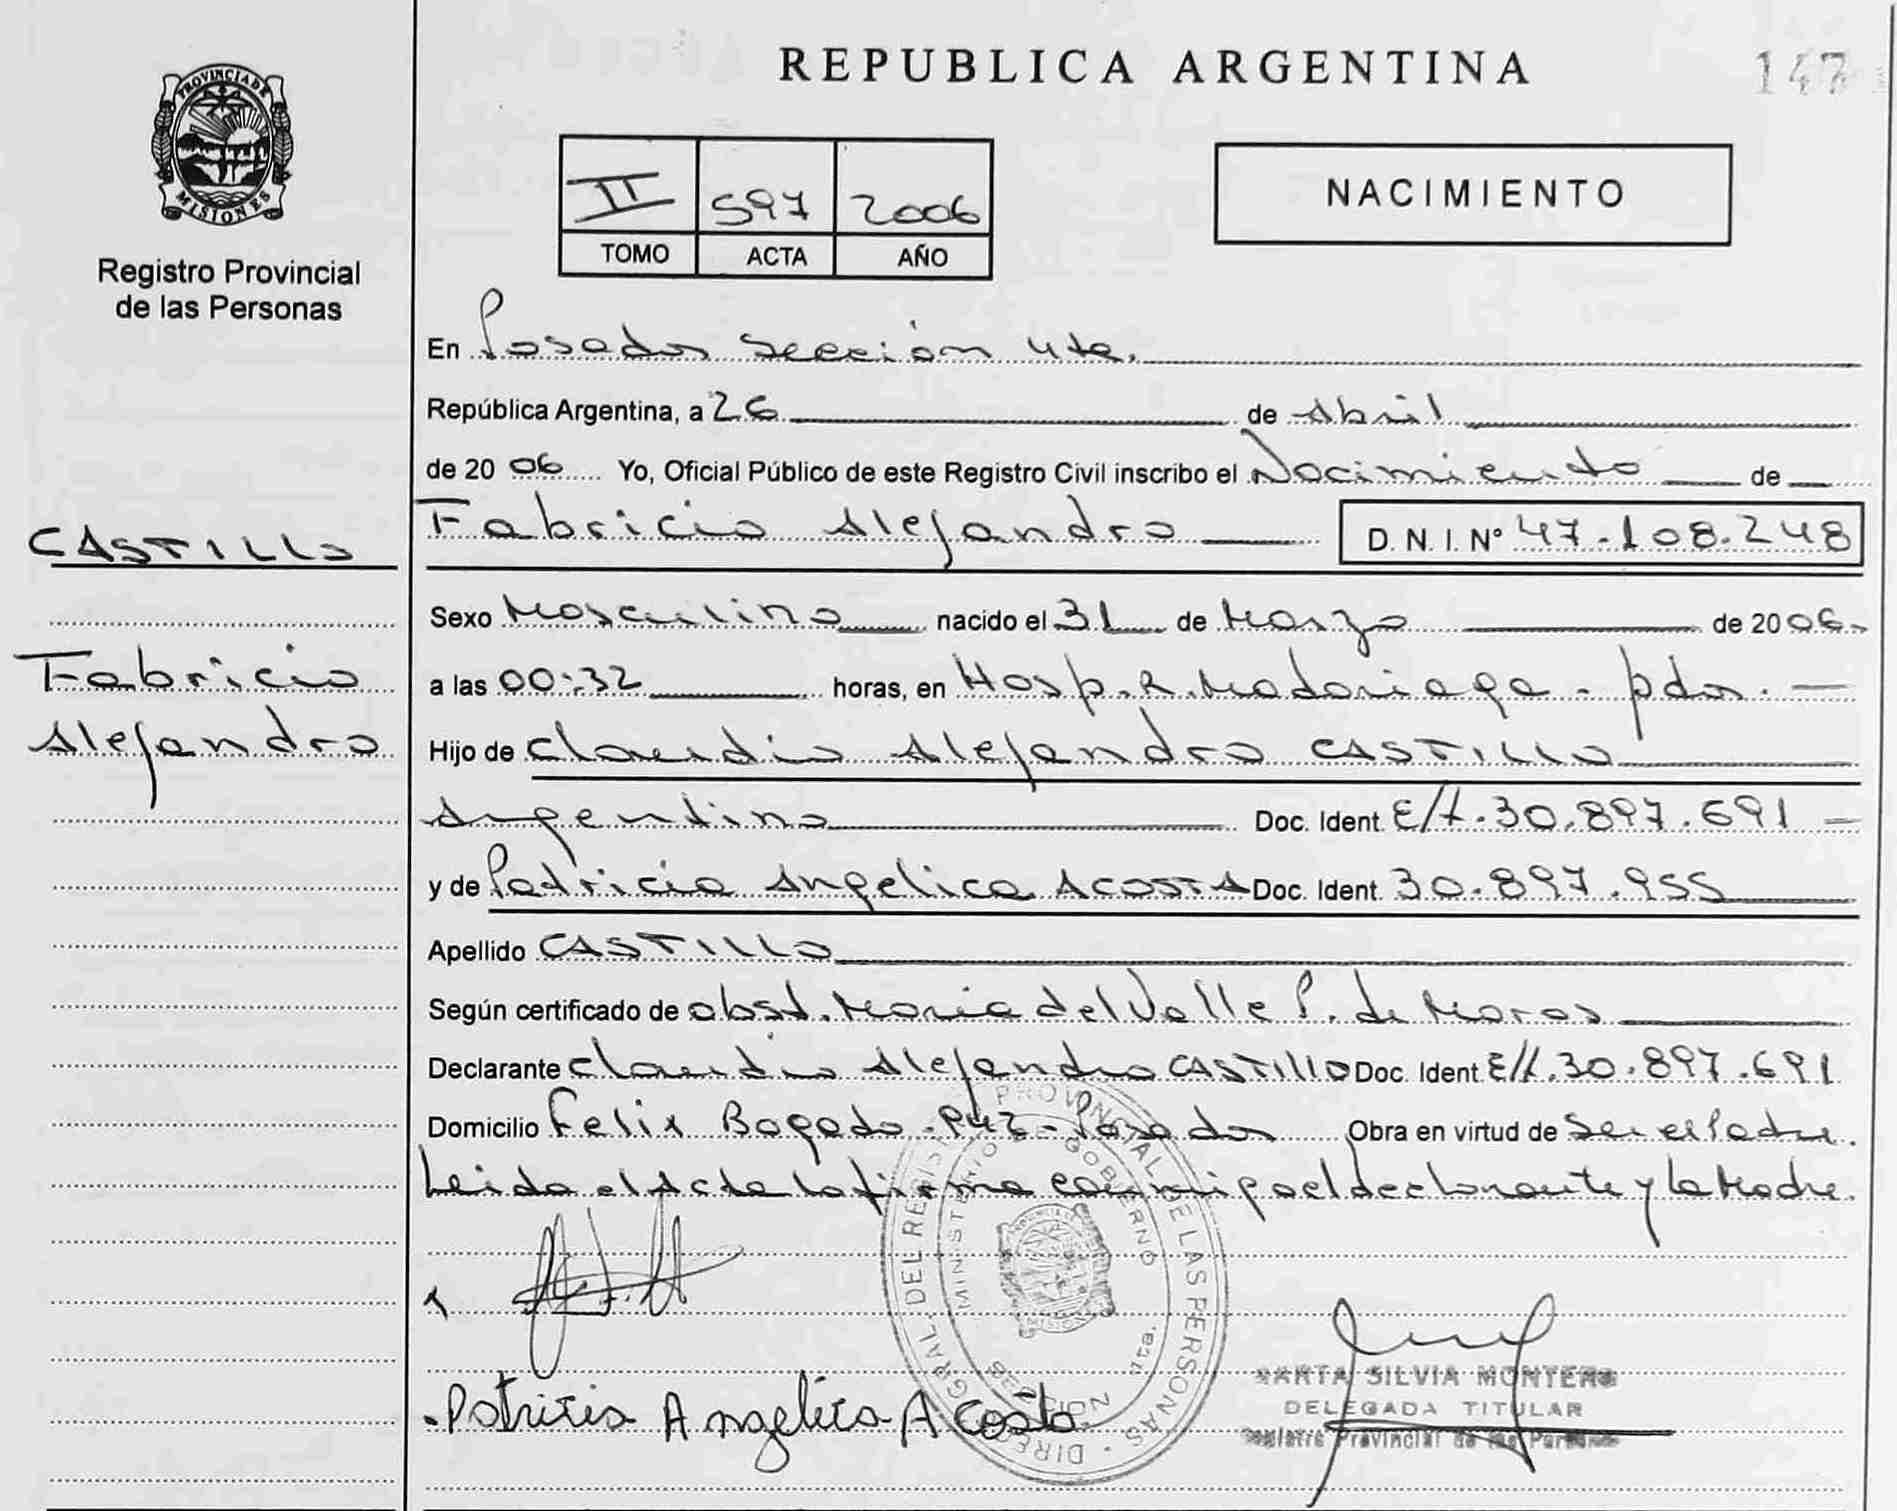 REPUBLICA ARGENTINA
147
PROVINCIA DE
MISIONES
Registro Provincial
de las Personas
II 597 2006
TOMO ACTA AÑO
NACIMIENTO
En Posadas Sección 4ta.
República Argentina, a 26 de Abril
de 2006 Yo, Oficial Público de este Registro Civil inscribo el Nacimiento de
Fabricio Alejandro D.N.I. Nº 47.108.248
CASTILLO
Fabricio
Alejandro
Sexo Masculino nacido el 31 de Marzo de 2006.
a las 00:32 horas, en Hosp. R. Madariaga - pdas.
Hijo de Claudio Alejandro CASTILLO
Argentino Doc. Ident. E/t. 30.897.691
y de Patricia Angelica ACOSTA Doc. Ident. 30.897.955
Apellido CASTILLO
Según certificado de obst. Maria del Valle P. de Moras
Declarante Claudio Alejandro CASTILLO Doc. Ident E/t. 30.897.691
Domicilio Felix Bogado - Posadas Obra en virtud de ser el Padre.
Leida el Acta la firma conmigo el declarante y la Madre.
DIREC GRAL DEL REGIST PROVINCIAL DE LAS PERSONAS
MINISTERIO DE GOBIERNO
SECCION 4ta.
Patricia Angelica Acosta
MARTA SILVIA MONTERO
DELEGADA TITULAR
Registro Provincial de las Personas